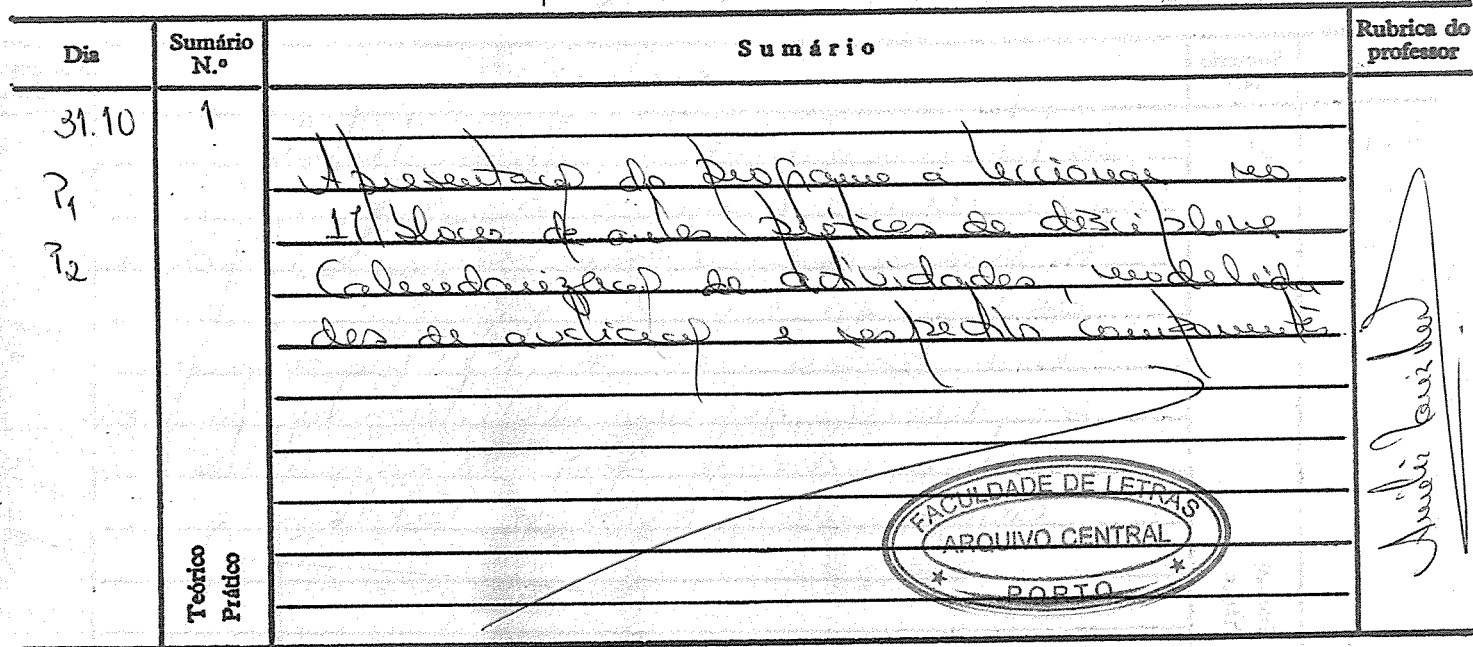 Dia
Sumário N.º
Sumário
Rubrica do professor
31.10
1
P1
P2
Apresentação do programa a leccionar no
1º bloco de aulas práticas da disciplina
Calendarização de actividades, modalida
des de avaliação e respectivos componentes.
Teórico
Prático
FACULDADE DE LETRAS
ARQUIVO CENTRAL
PORTO